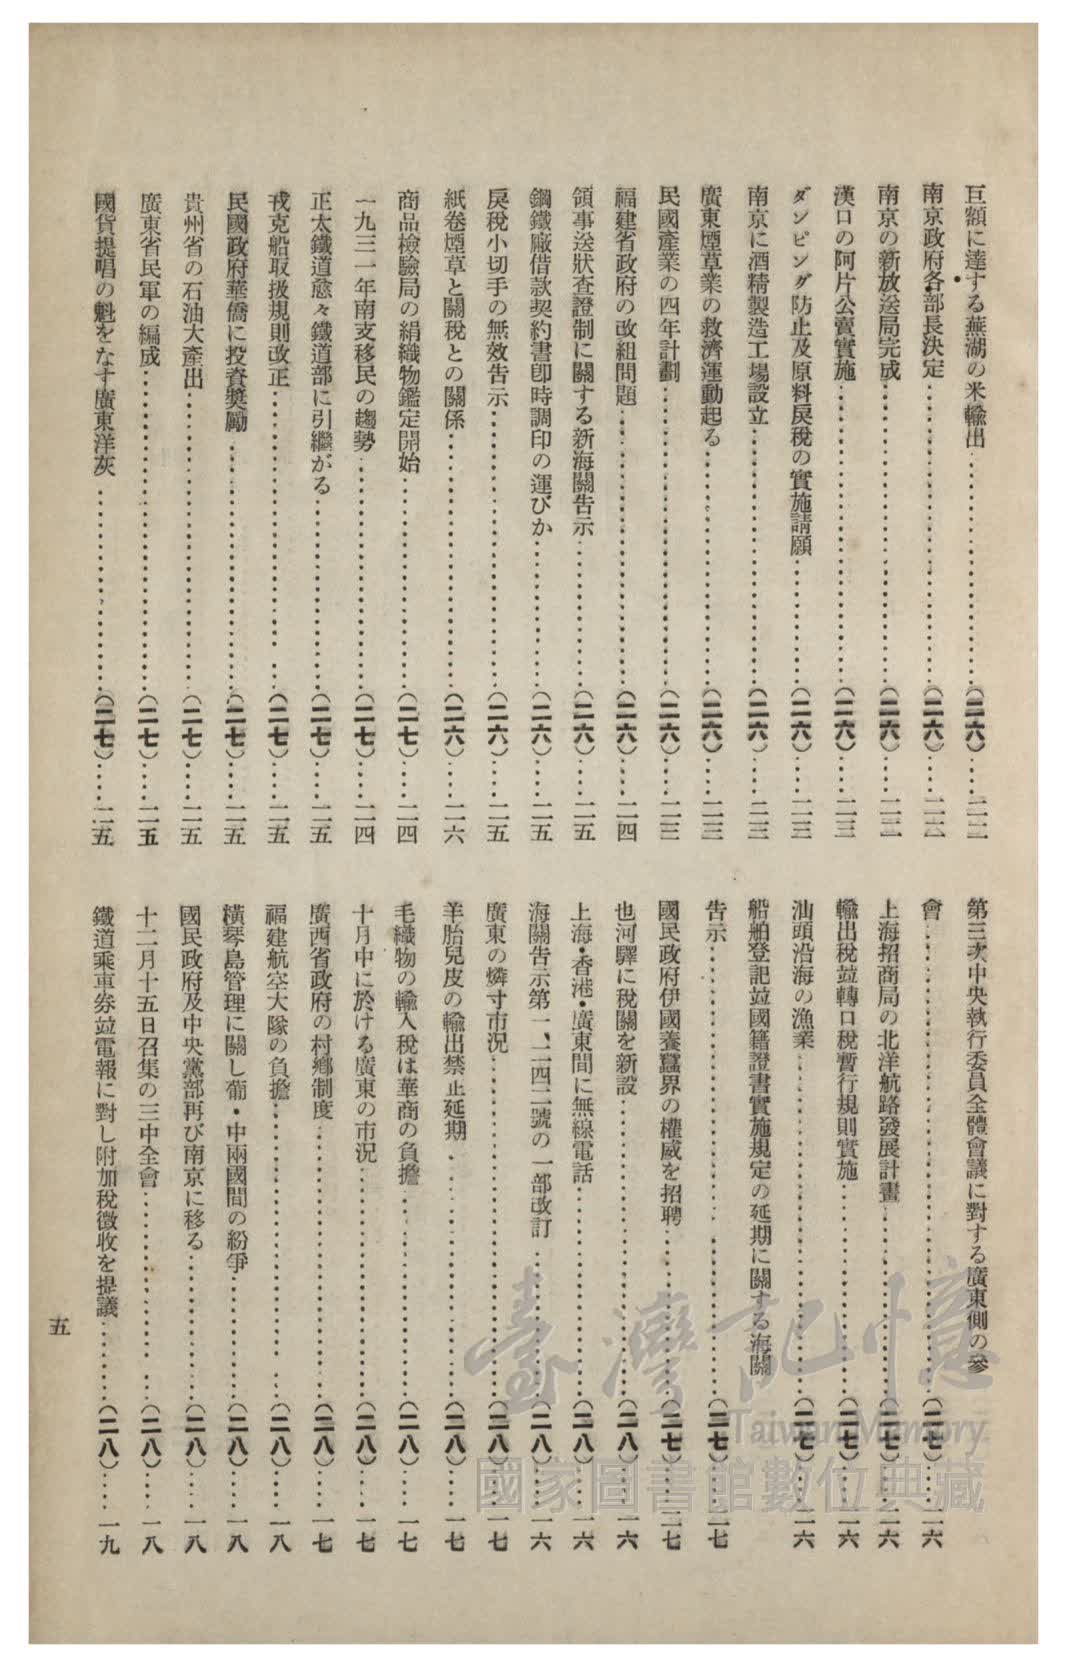 巨額に達する蕪湖の米輸出……(二六)……二二
南京政府各部長決定……(二六)……二二
南京の新放送局完成……(二六)……二三
漢口の阿片公賣實施……(二六)……二三
ダンピング防止及原料戾稅の實施請願……(二六)……二三
南京に酒精製造工場設立……(二六)……二三
廣東煙草業の救濟運動起る……(二六)……二三
民國產業の四年計劃……(二六)……二三
福建省政府の改組問題……(二六)……二四
領事送狀査證制に關する新海關告示……(二六)……二五
鋼鐵廠借款契約書卽時調印の運びか……(二六)……二五
戾稅小切手の無效告示……(二六)……二五
紙卷煙草と關稅との關係……(二六)……二六
商品檢驗局の絹織物鑑定開始……(二七)……二四
一九三一年南支移民の趨勢……(二七)……二四
正太鐵道愈々鐵道部に引繼がる……(二七)……二五
戎克船取扱規則改正……(二七)……二五
民國政府華僑に投資獎勵……(二七)……二五
貴州省の石油大產出……(二七)……二五
廣東省民軍の編成……(二七)……二五
國貨提唱の魁をなす廣東洋灰……(二七)……二五
第三次中央執行委員全體會議に對する廣東側の參
會……(二七)……二六
上海招商局の北洋航路發展計畫……(二七)……二六
輸出稅竝轉口稅暫行規則實施……(二七)……二六
汕頭沿海の漁業……(二七)……二六
船舶登記竝國籍證書實施規定の延期に關する海關
告示……(二七)……二七
國民政府伊國養蠶界の權威を招聘……(二七)……二七
也河驛に稅關を新設……(二八)……一六
上海・香港・廣東間に無線電話……(二八)……一六
海關告示第一、二四二號の一部改訂……(二八)……一六
廣東の燐寸市況……(二八)……一七
羊胎兒皮の輸出禁止延期……(二八)……一七
毛織物の輸入稅は華商の負擔……(二八)……一七
十月中に於ける廣東の市況……(二八)……一七
廣西省政府の村鄕制度……(二八)……一七
福建航空大隊の負擔……(二八)……一八
橫琴島管理に關し葡・中兩國間の紛爭……(二八)……一八
國民政府及中央黨部再び南京に移る……(二八)……一八
十二月十五日召集の三中全會……(二八)……一八
鐵道乘車券竝電報に對し附加稅徵收を提議……(二八)……一九
五
臺灣記憶
Taiwan Memory
國家圖書館數位典藏